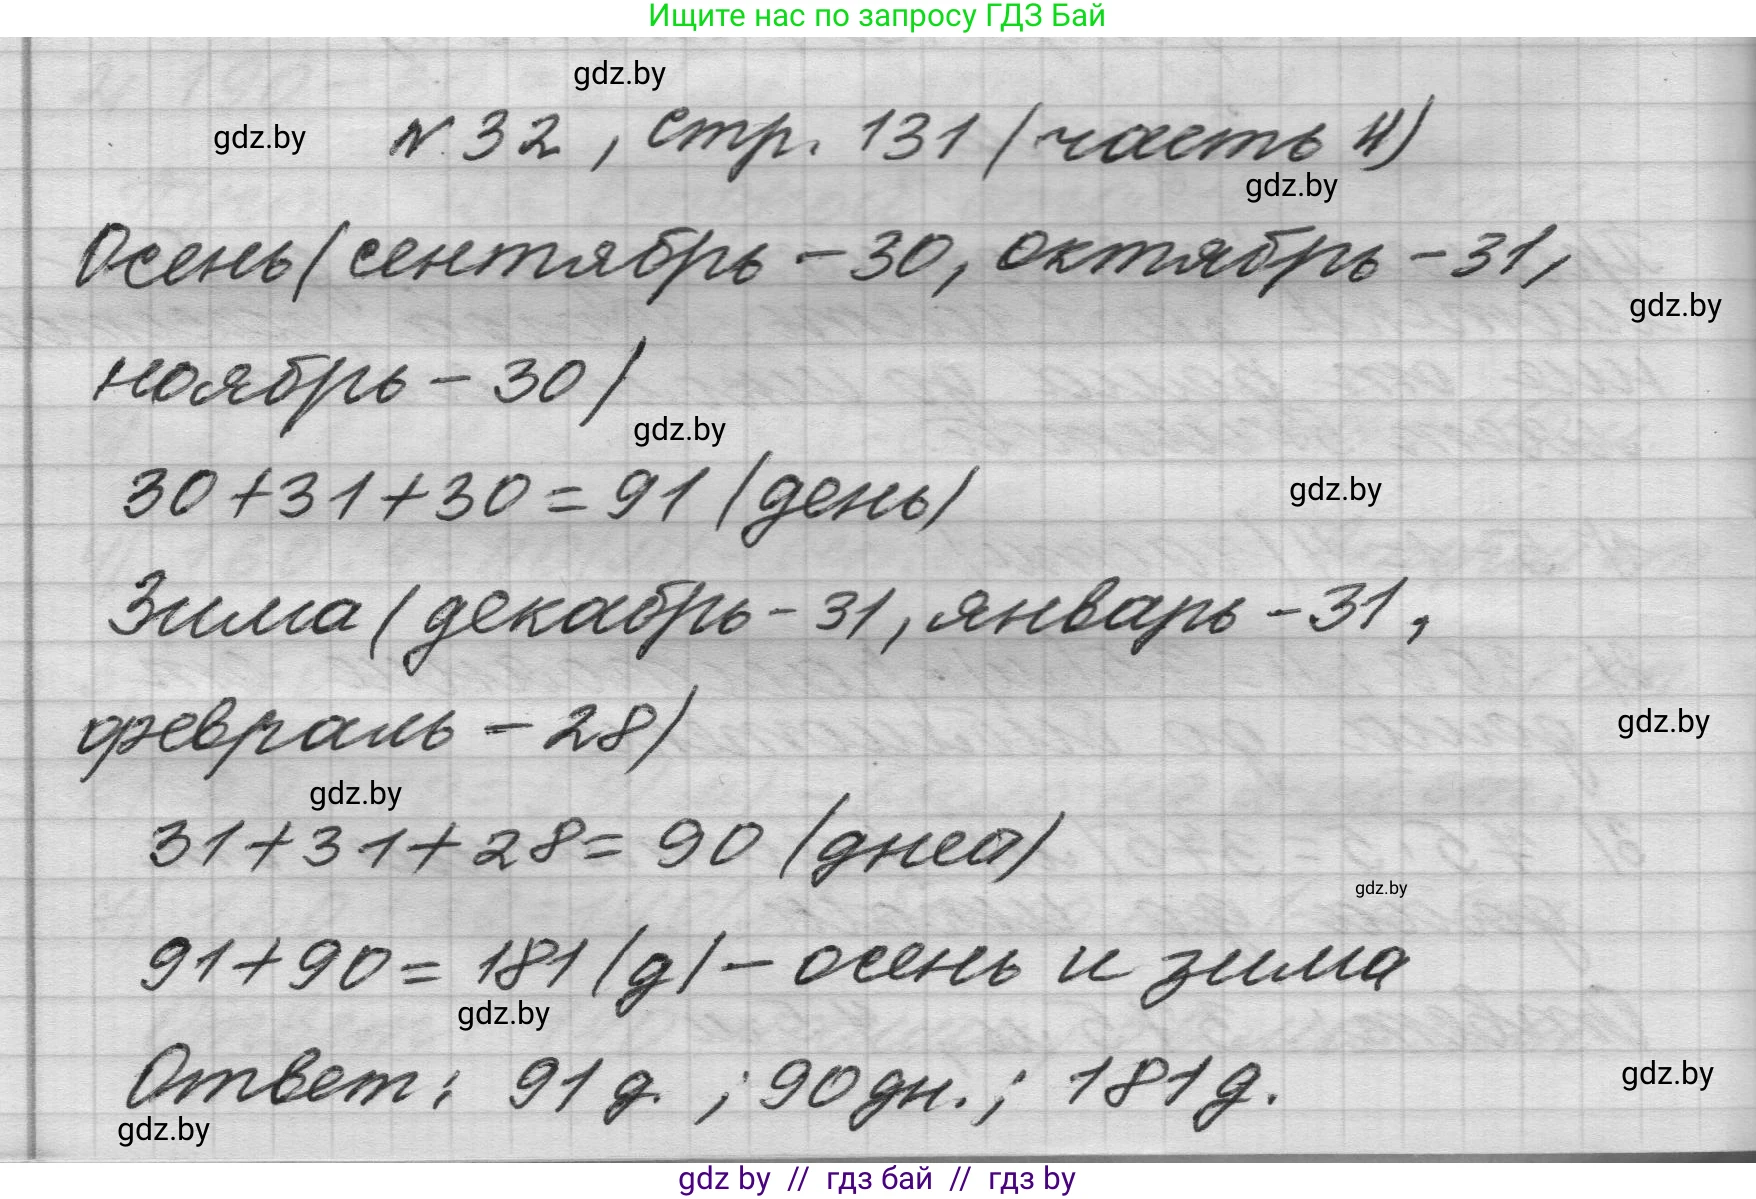 Ищите нас по запросу ГДЗ Бай
gdz.by
gdz.by
N 32, стр. 131 (часть 4)
gdz.by
Осень (сентябрь - 30, октябрь - 31,
gdz.by
ноябрь - 30)
gdz.by
30+31+30=91 (день)
gdz.by
Зима (декабрь - 31, январь - 31,
февраль - 28)
gdz.by
gdz.by
31+31+28=90 (дней)
gdz.by
91+90=181 (д) - осень и зима
gdz.by
Ответ: 91 д. ; 90 дн. ; 181 д.
gdz.by
gdz.by
gdz by // гдз бай // гдз by